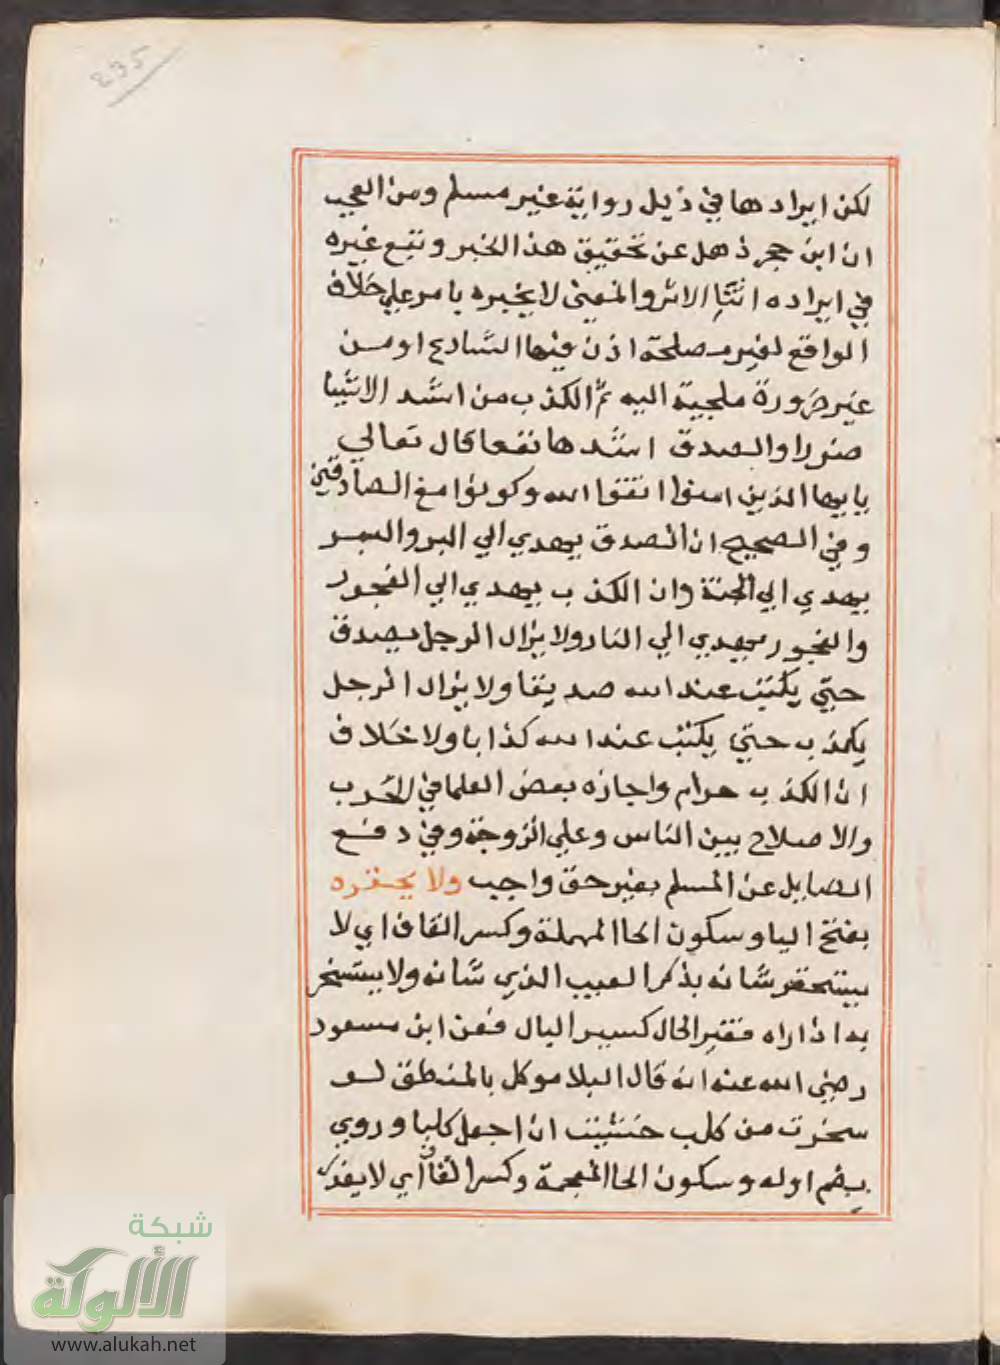 235
لكن ايرادها في ذيل رواية غير مسلم ومن العجب
ان ابن حجر ذهل عن تحقيق هذا الخبر وتبع غيره
في ايراده اثنا الاثر والمعني لا يخبره بامر علي خلاف
الواقع لغير مصلحة اذن فيها الشارع او من
غير ضرورة ملجية اليه ثم الكذب من اشد الاشيا
ضررا والصدق اشدها نفعا قال تعالي
يايها الذين امنوا اتقوا الله وكونوا مع الصادقين
وفي الصحيح ان الصدق يهدي الي البر والبر
يهدي الي الجنة وان الكذب يهدي الي الفجور
والفجور يهدي الي النار ولا يزال الرجل يصدق
حتي يكتب عند الله صديقا ولا يزال الرجل
يكذب حتي يكتب عند الله كذابا ولا خلاف
ان الكذب حرام واجازه بعض العلما في الحرب
والاصلاح بين الناس وعلي الزوجة وفي دفع
الصايل عن المسلم بغير حق واجب ولا يحقره
بفتح اليا وسكون الحا المهملة وكسر القاف اي لا
يستحقر شانه بذكر العيب الذي شانه ولا يستسخر
به اذا راه فقير الحال كسير البال فعن ابن مسعود
رضي الله عنه انه قال البلا موكل بالمنطق لو
سخرت من كلب خشيت ان اجعل كلبا وروي
بضم اوله وسكون الخا المعجمة وكسر الفا اي لا يغدر
شبكة
الألوكة
www.alukah.net